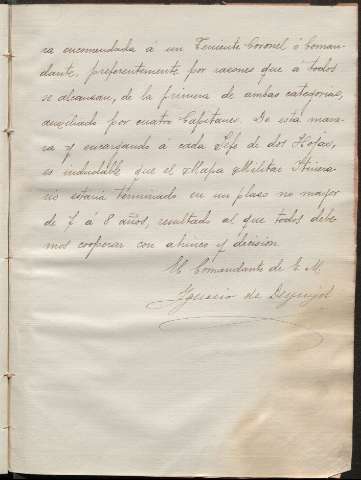 ra encomendada á un Teniente Coronel ó Coman-
dante, preferentemente por razones que á todos
se alcanzan, de la primera de ambas categorias,
auxiliado por cuatro Capitanes. De esta mane-
ra y encargando á cada Jefe de dos Hojas,
es indudable que el Mapa Militar Itinera-
rio estaria terminado en un plazo no mayor
de 7 á 8 años, resultado al que todos debe-
mos cooperar con ahinco y decision
El Comandante de E. M.
Ignacio de